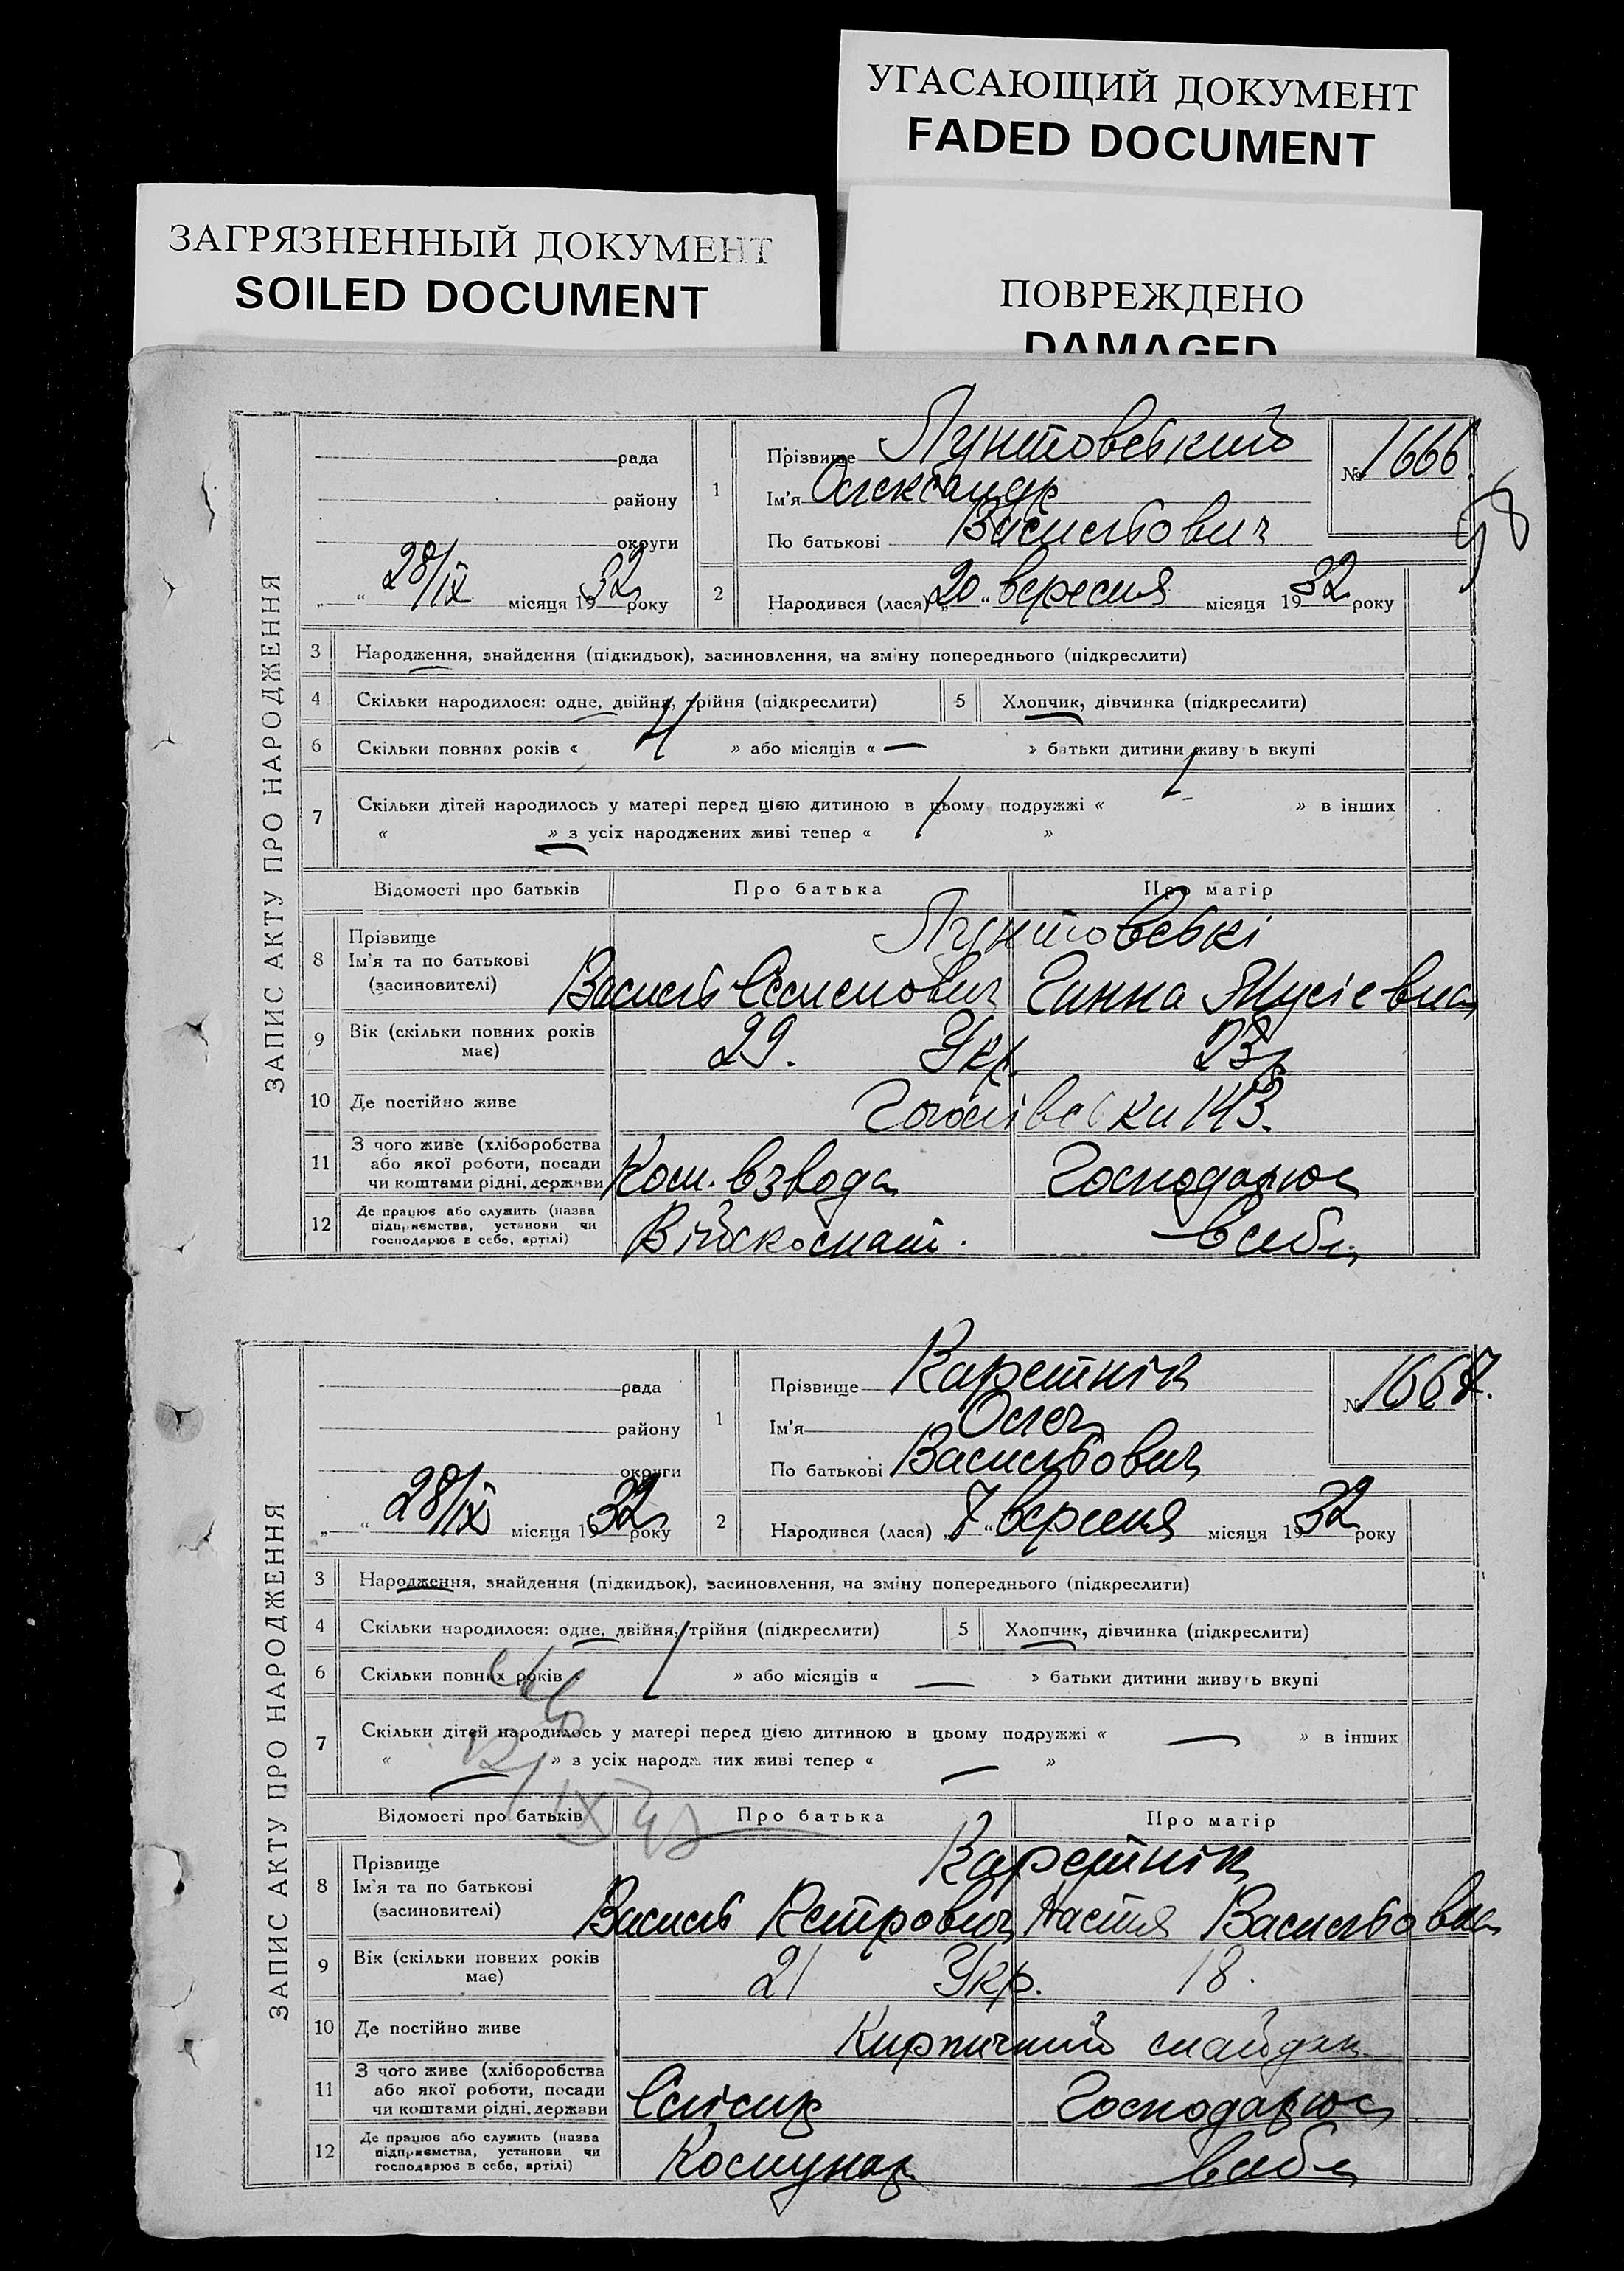 УГАСАЮЩИЙ ДОКУМЕНТ
FADED DOCUMENT
ЗАГРЯЗНЕННЫЙ ДОКУМЕНТ
SOILED DOCUMENT
ПОВРЕЖДЕНО
DAMAGED
ЗАПИС АКТУ ПРО НАРОДЖЕННЯ
рада
району
округи
„ “ 28/IX місяця 1932 року
1 Прізвище
Ім'я Олександр
По батькові Васильович
№ 1666.
58
2 Народився (лася) „20“ вересня місяця 1932 року
3 Народження, знайдення (підкидьок), засиновлення, на зміну попереднього (підкреслити)
4 Скільки народилося: одне, двійня, трійня (підкреслити) 5 Хлопчик, дівчинка (підкреслити)
6 Скільки повних років « 4 » або місяців « — » батьки дитини живуть вкупі
7 Скільки дітей народилось у матері перед цією дитиною в цьому подружжі « » в інших
« » з усіх народжених живі тепер « »
Відомості про батьків Про батька Про матір
8 Прізвище
Ім'я та по батькові
(засиновителі)
Василь Семенович Ганна Мусіевна
9 Вік (скільки повних років має) 29. Укр. 23
10 Де постійно живе 143.
11 З чого живе (хліборобства або якої роботи, посади чи коштами рідні, держави Ком. взвода Господарює
12 Де працює або служить (назва підприємства, установи чи господарює в себе, артілі) в себе
ЗАПИС АКТУ ПРО НАРОДЖЕННЯ
рада
району
округи
„ “ 28/IX місяця 1932 року
1 Прізвище Каретнік
Ім'я Олег
По батькові Васильович
№ 1667.
2 Народився (лася) „7“ вересня місяця 1932 року
3 Народження, знайдення (підкидьок), засиновлення, на зміну попереднього (підкреслити)
4 Скільки народилося: одне, двійня, трійня (підкреслити) 5 Хлопчик, дівчинка (підкреслити)
6 Скільки повних років « 1 » або місяців « — » батьки дитини живуть вкупі
7 Скільки дітей народилось у матері перед цією дитиною в цьому подружжі « — » в інших
« — » з усіх народжених живі тепер « — »
Відомості про батьків Про батька Про матір
8 Прізвище
Ім'я та по батькові
(засиновителі)
Каретнік
Василь Петрович Настя Васильовна
9 Вік (скільки повних років має) 21 Укр. 18.
10 Де постійно живе Кирпичний майдан
11 З чого живе (хліборобства або якої роботи, посади чи коштами рідні, держави Слісар Господарює
12 Де працює або служить (назва підприємства, установи чи господарює в себе, артілі) Комунар в себе